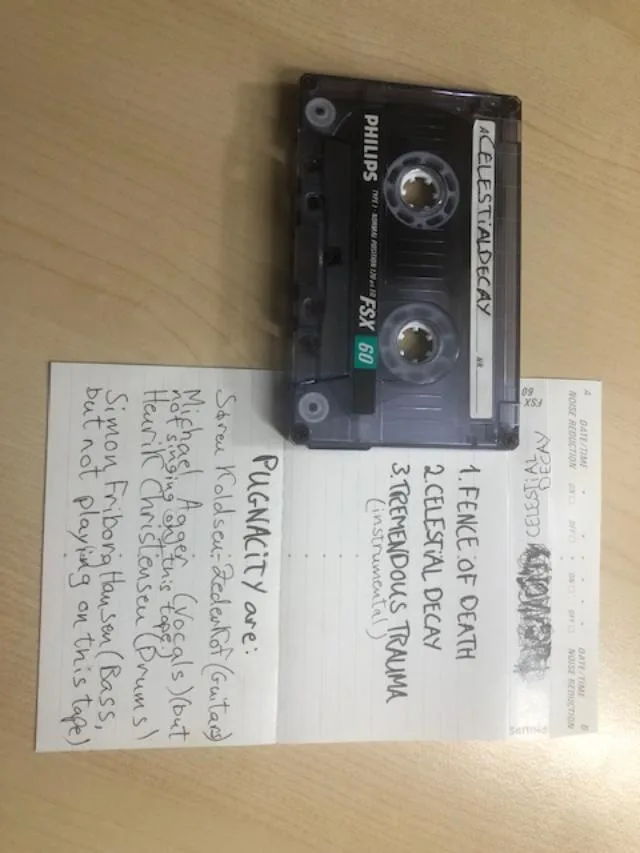 A CELESTIAL DECAY
NR
PHILIPS
TYPE I · NORMAL POSITION 120 µs EQ
FSX 60
A DATE/TIME
NOISE REDUCTION ON OFF
B DATE/TIME
NOISE REDUCTION ON OFF
FSX
60
CELESTIAL
DECAY
PHILIPS
1. FENCE OF DEATH
2. CELESTIAL DECAY
3. TREMENDOUS TRAUMA
(instrumental)
PUGNACITY are:
Søren Koldsen-Zederkof (Guitars)
Michael Agger (Vocals) (but
not singing on this tape)
Henrik Christensen (Drums)
Simon Friborg Hansen (Bass,
but not playing on this tape)